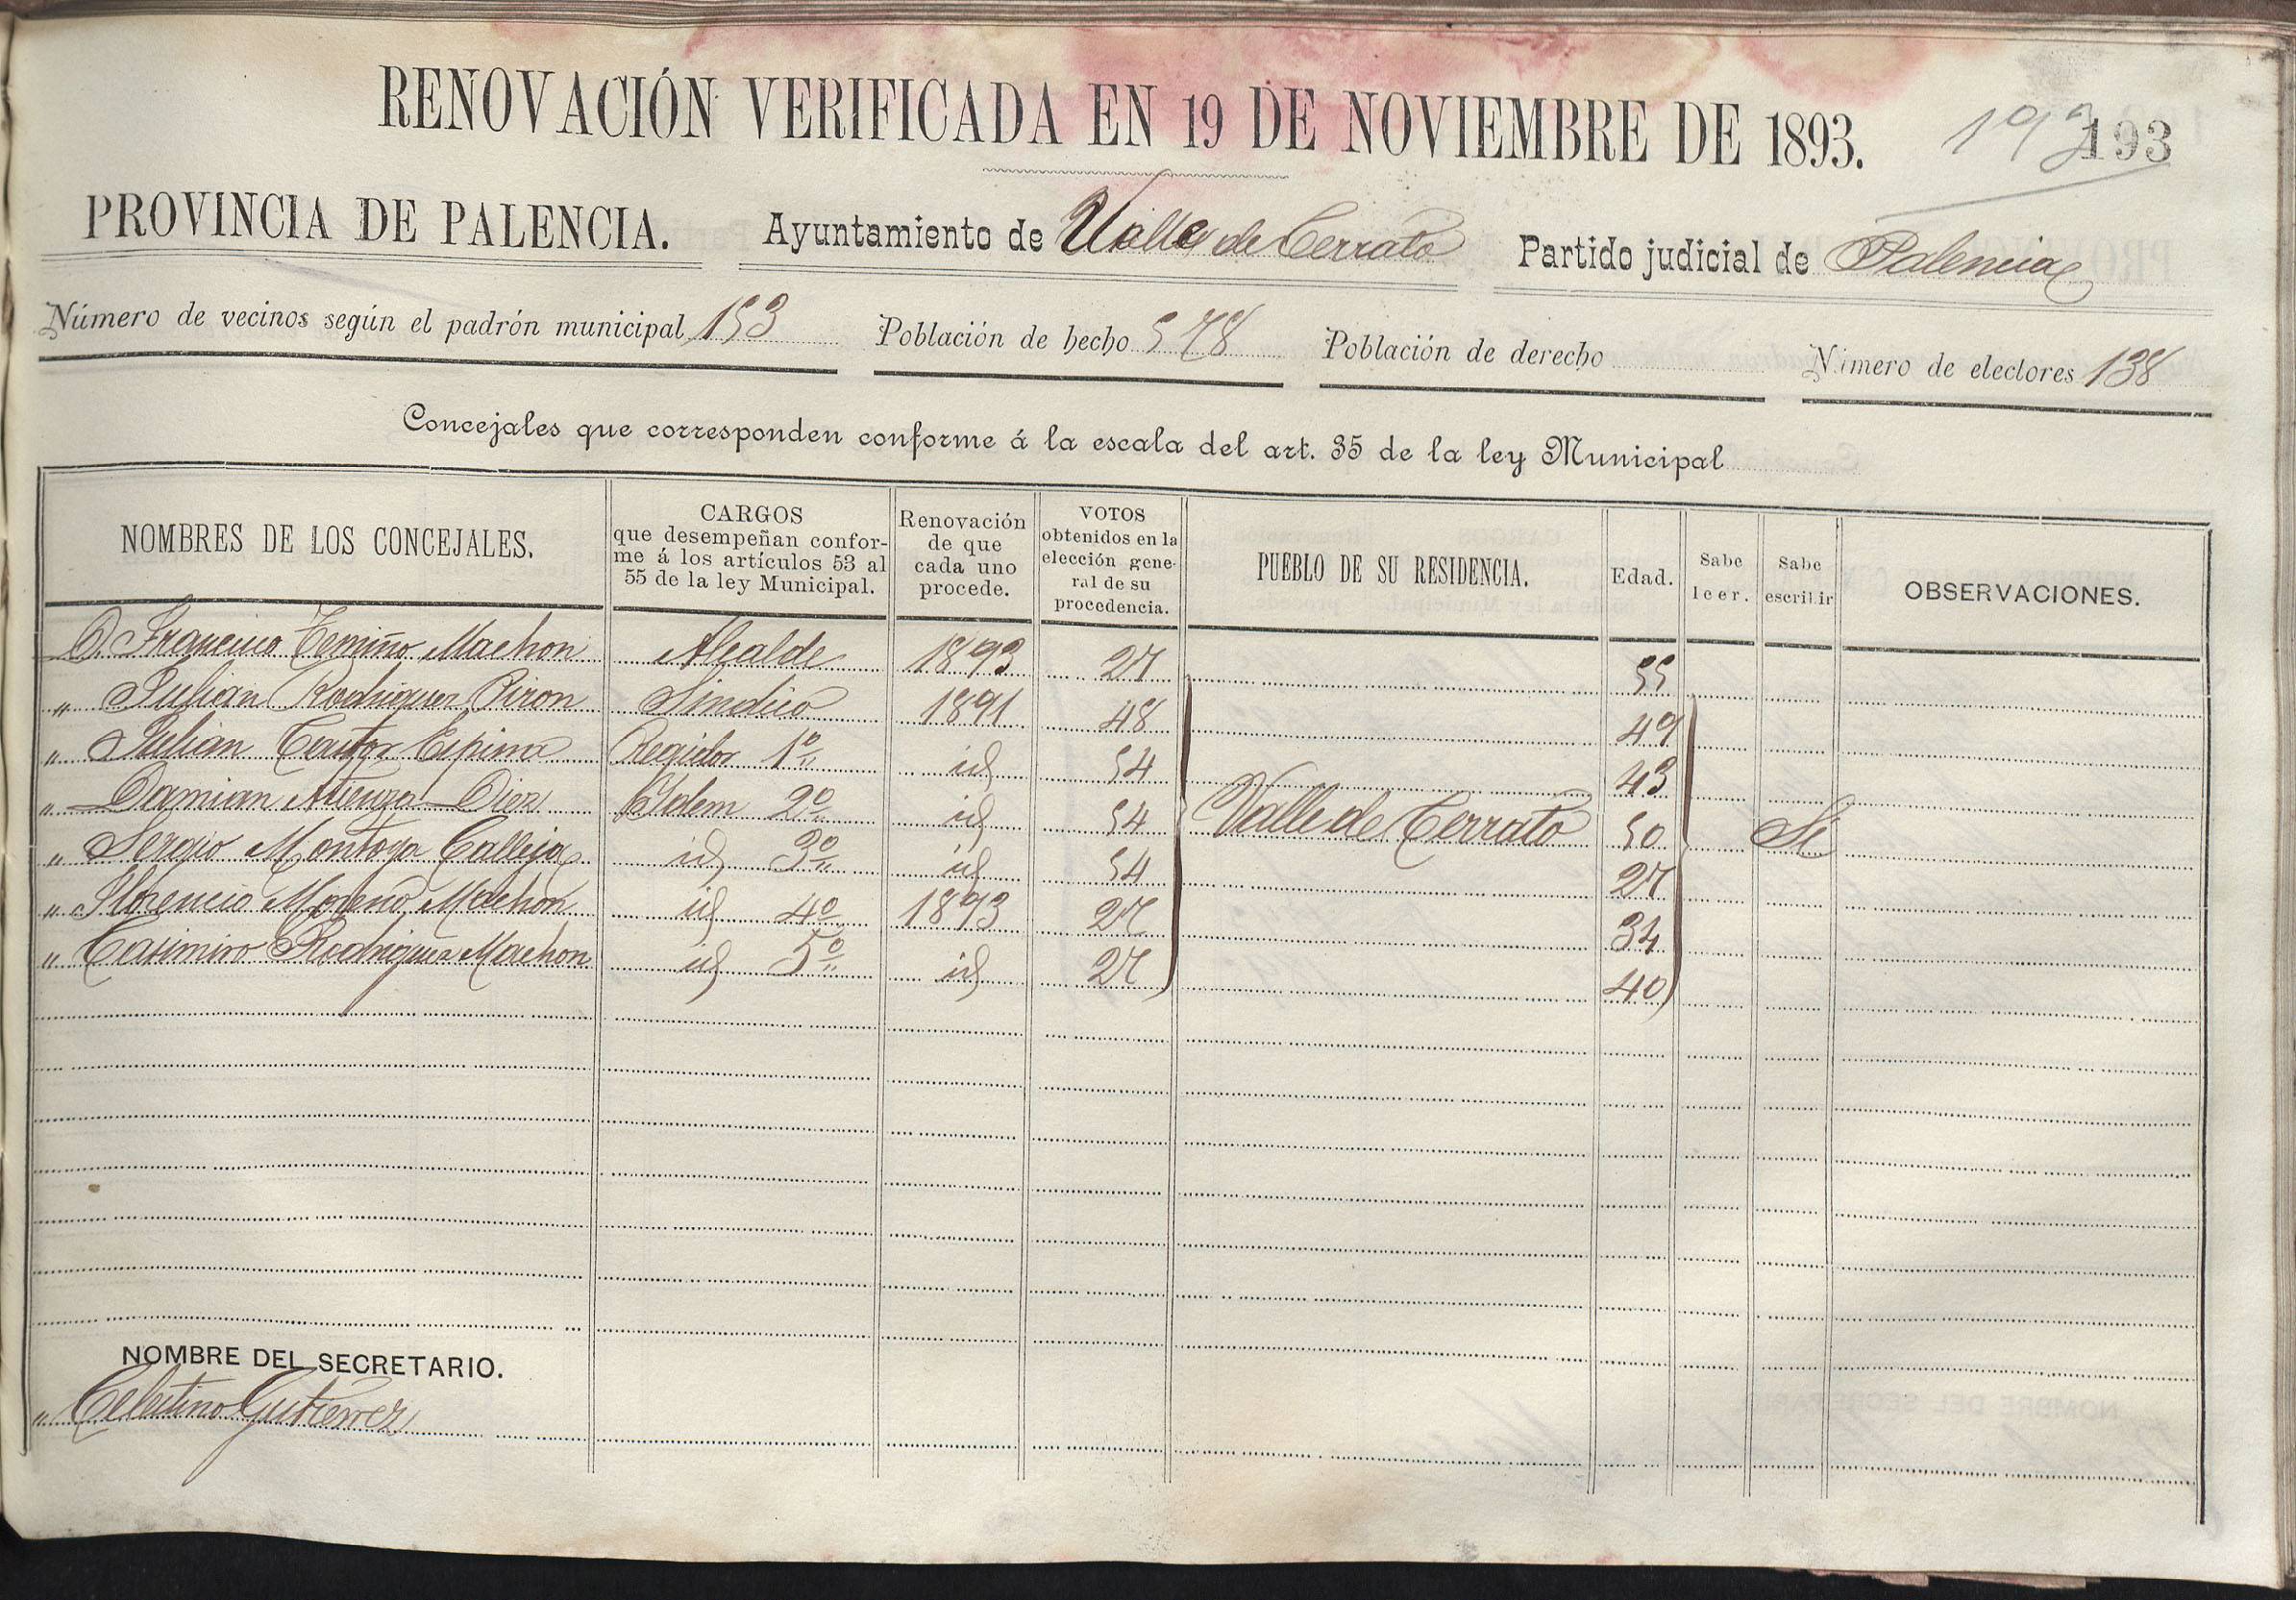 RENOVACIÓN VERIFICADA EN 19 DE NOVIEMBRE DE 1893. 192 193
PROVINCIA DE PALENCIA. Ayuntamiento de Valle de Cerrato Partido judicial de Palencia
Número de vecinos según el padrón municipal 153 Población de hecho 578 Población de derecho Número de electores 138
Concejales que corresponden conforme á la escala del art. 35 de la ley Municipal
NOMBRES DE LOS CONCEJALES. CARGOS que desempeñan conforme á los artículos 53 al 55 de la ley Municipal. Renovación de que cada uno procede. VOTOS obtenidos en la elección general de su procedencia. PUEBLO DE SU RESIDENCIA. Edad. Sabe leer. Sabe escribir OBSERVACIONES.
D. Francisco Temiño Machon Alcalde 1893 27 55
" Julian Rodriguez Piron Sindico 1891 48 49
" Julian Cantor Espina Regidor 1º id 54 43
" Damian Atienza Diez Idem 2º id 54 Valle de Cerrato 50 Si
" Sergio Montoya Calleja id 3º id 54 27
" Florencio Moreno Machon id 4º 1893 27 34
" Casimiro Rodriguez Machon id 5º id 27 40
NOMBRE DEL SECRETARIO.
" Celestino Gutierrez